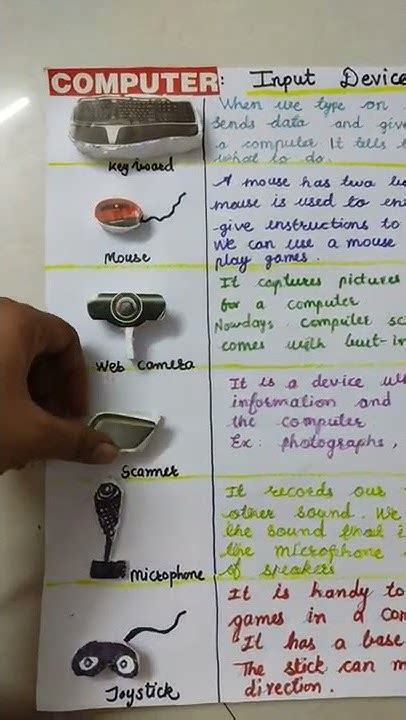 COMPUTER : Input Device
When we type on
sends data and give
a computer It tells
what to do.
Keyboard
A mouse has two
mouse is used to
give instructions to
We can use a mouse
play games.
Mouse
It captures pictures
for a computer
Nowdays computer
comes with built-in
Web camera
It is a device
information and
the computer
Ex: photographs,
Scanner
It records our
other sound. We
the sound that
the microphone
of speakers
Microphone
It is handy to
games in a
It has a base
The stick can
direction.
Joystick